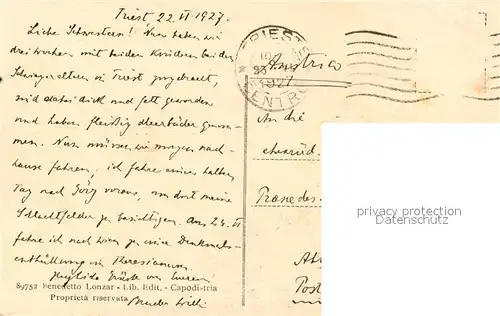 Triest 22.VI.1927.
Liebe Schwestern! Nun haben wir
drei Wochen mit beiden Kindern bei den
Schwiegereltern in Triest zugebracht,
sind dabei dick und fett geworden
und haben fleißig Meerbäder genom-
men. Nun müssen wir morgen nach-
hause fahren, ich fahre einen halben
Tag nach Görz voraus, um dort meine
Schlachtfelder zu besichtigen. Am 24. VI
fahre ich nach Wien zu einer Denkmals-
enthüllung im Theresianum.
Herzliche Grüße von Eurem
Bruder Willi
89752 Benedetto Lonzar - Lib. Edit. - Capodistria
Proprietà riservata
TRIESTE
1927
CENTRO
Austria
An die
ehrwürd.
privacy protection
watermark
Post